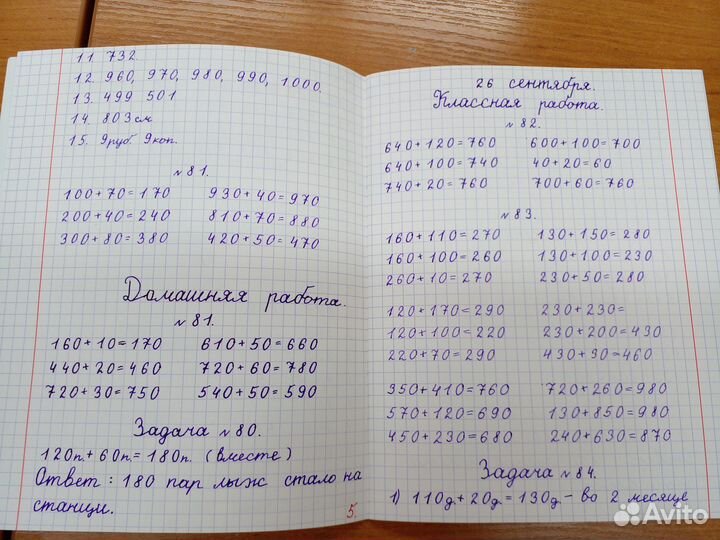 11. 732.
12. 960, 970, 980, 990, 1000.
13. 499 501
14. 803 см
15. 9 руб. 9 коп.
№ 81.
100 + 70 = 170 930 + 40 = 970
200 + 40 = 240 810 + 70 = 880
300 + 80 = 380 420 + 50 = 470
Домашняя работа.
№ 81.
160 + 10 = 170 610 + 50 = 660
440 + 20 = 460 720 + 60 = 780
720 + 30 = 750 540 + 50 = 590
Задача № 80.
120п. + 60п. = 180п. (вместе)
Ответ: 180 пар лыж стало на
станции.
5.
26 сентября.
Классная работа.
№ 82.
640 + 120 = 760 600 + 100 = 700
640 + 100 = 740 40 + 20 = 60
740 + 20 = 760 700 + 60 = 760
№ 83.
160 + 110 = 270 130 + 150 = 280
160 + 100 = 260 130 + 100 = 230
260 + 10 = 270 230 + 50 = 280
120 + 170 = 290 230 + 230 =
120 + 100 = 220 230 + 200 = 430
220 + 70 = 290 430 + 30 = 460
350 + 410 = 760 720 + 260 = 980
570 + 120 = 690 130 + 850 = 980
450 + 230 = 680 240 + 630 = 870
Задача № 84.
1) 110д. + 20д. = 130д. - во 2 месяце
Avito